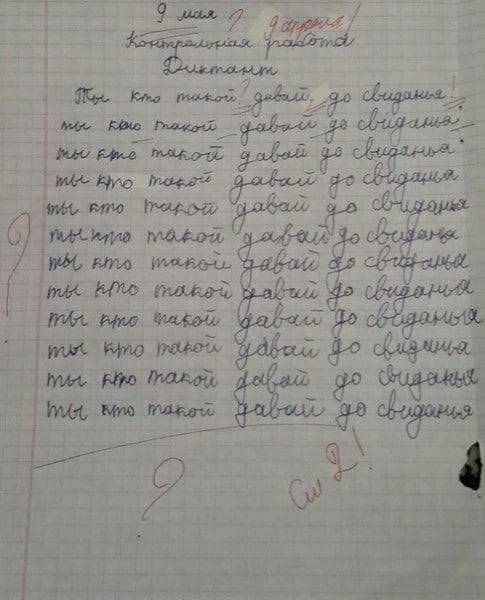 9 мая ? 9 апреля!
Контрольная работа
Диктант
Ты кто такой? давай, до свиданья!
ты кто такой давай до свиданья.
ты кто такой давай до свиданья.
ты кто такой давай до свиданья
ты кто такой давай до свиданья
ты кто такой давай до свиданья
ты кто такой давай до свиданья
ты кто такой давай до свиданья
ты кто такой давай до свиданья
ты кто такой давай до свиданья
ты кто такой давай до свиданья
ты кто такой давай до свиданья
?
?
См 2!